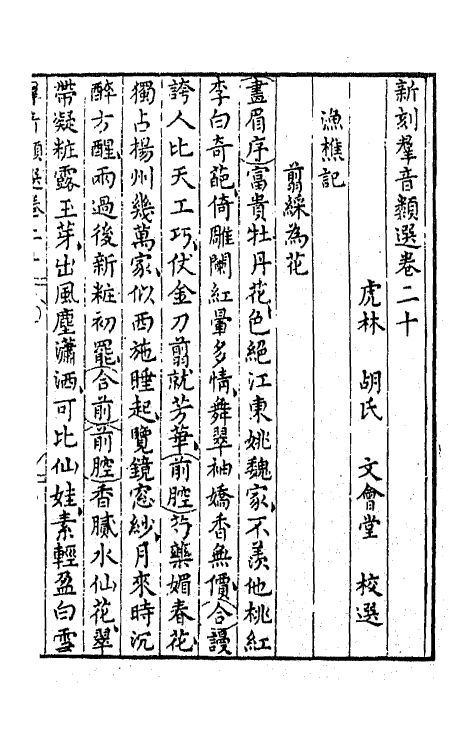 新刻羣音類選卷二十
虎林 胡氏 文會堂 校選
漁樵記
翦綵為花
畫眉序富貴牡丹花色絕江東姚魏家不羨他桃紅
李白奇葩倚雕闌紅暈多情舞翠袖嬌香無價合謾
誇人比天工巧仗金刀翦就芳華前腔芍藥媚春花
獨占楊州幾萬家似西施睡起覽鏡窓紗月來時沉
醉方醒雨過後新粧初罷合前前腔香膩水仙花翠
帶凝粧露玉芽出風塵瀟洒可比仙娃素輕盈白雪
羣音類選卷二十